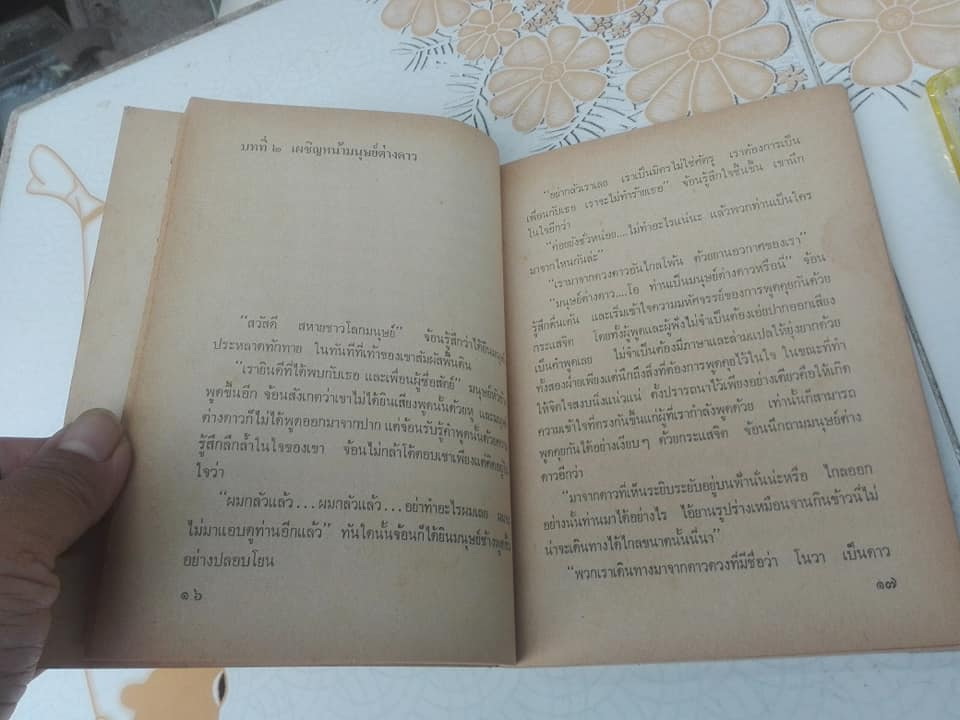 บทที่ ๒ เผชิญหน้ามนุษย์ต่างดาว
“สวัสดี สหายชาวโลกมนุษย์” จ้อนรู้สึกว่าได้ยินมนุษย์
ประหลาดทักทาย ในทันทีที่เท้าของเขาสัมผัสพื้นดิน
“เรายินดีที่ได้พบกับเธอ และเพื่อนผู้ซื่อสัตย์” มนุษย์หัวโต
พูดขึ้นอีก จ้อนสังเกตว่าเขาไม่ได้ยินเสียงพูดนั้นด้วยหู และมนุษย์
ต่างดาวก็ไม่ได้พูดออกมาจากปาก แต่จ้อนรับรู้คำพูดนั้นด้วยความ
รู้สึกลึกล้ำในใจของเขา จ้อนไม่กล้าโต้ตอบเขาเพียงแต่คิดอยู่ใน
ใจว่า
“ผมกลัวแล้ว...ผมกลัวแล้ว...อย่าทำอะไรผมเลย
ไม่มาแอบดูท่านอีกแล้ว” ทันใดนั้นจ้อนก็ได้ยินมนุษย์ข้างหูดุจ
อย่างปลอบโยน
๑๖
“อย่ากลัวเราเลย เราเป็นมิตรไม่ใช่ศัตรู เราต้องการเป็น
เพื่อนกับเธอ เราจะไม่ทำร้ายเธอ” จ้อนรู้สึกใจชื้นขึ้น เขานึก
ในใจอีกว่า
“ค่อยยังชั่วหน่อย....ไม่ทำอะไรแน่นะ แล้วพวกท่านเป็นใคร
มาจากไหนกันล่ะ”
“เรามาจากดวงดาวอันไกลโพ้น ด้วยยานอวกาศของเรา”
“มนุษย์ต่างดาว....โอ ท่านเป็นมนุษย์ต่างดาวหรือนี่” จ้อน
รู้สึกตื่นเต้น และเริ่มเข้าใจความมหัศจรรย์ของการพูดคุยกันด้วย
กระแสจิต โดยทั้งผู้พูดและผู้ฟังไม่จำเป็นต้องเอ่ยปากออกเสียง
เป็นคำพูดเลย ไม่จำเป็นต้องมีภาษาและล่ามแปลให้ยุ่งยากด้วย
ทั้งสองฝ่ายเพียงแต่นึกถึงสิ่งที่ต้องการพูดคุยไว้ในใจ ในขณะที่ทำ
ให้จิตใจสงบนิ่งแน่วแน่ ตั้งปรารถนาไว้เพียงอย่างเดียวคือให้เกิด
ความเข้าใจที่ตรงกันขึ้นแก่ผู้ที่เรากำลังพูดด้วย เท่านั้นก็สามารถ
พูดคุยกันได้อย่างเงียบๆ ด้วยกระแสจิต จ้อนนึกถามมนุษย์ต่าง
ดาวอีกว่า
“มาจากดาวที่เห็นระยิบระยับอยู่บนฟ้านั่นน่ะหรือ ไกลออก
อย่างนั้นท่านมาได้อย่างไร ไอ้ยานรูปร่างเหมือนจานกินข้าวนี่ไม่
น่าจะเดินทางได้ไกลขนาดนั้นนี่นา”
“พวกเราเดินทางมาจากดาวดวงที่มีชื่อว่า โนวา เป็นดาว
๑๗